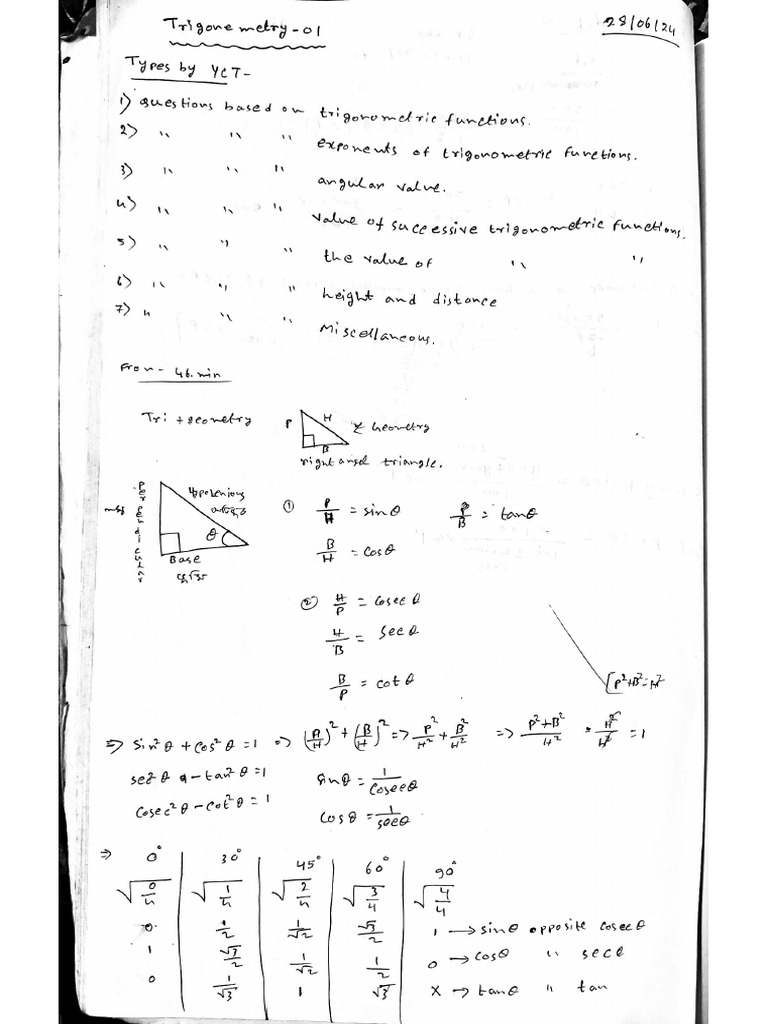 Trigonometry-01
28/06/24
Types by YCT-
1) Questions based on trigonometric functions.
2) " " " exponents of trigonometric functions.
3) " " " angular value.
4) " " " value of successive trigonometric functions.
5) " " " the value of " "
6) " " " height and distance
7) " " " Miscellaneous.
From - 46.min
Tri + geometry
P H B
Geometry
right angel triangle.
Perpendicular
θ
Base
① P/H = sinθ P/B = tanθ
B/H = cosθ
② H/P = cosec θ
H/B = sec θ
B/P = cot θ
P²+B²=H²
=> Sin²θ + Cos²θ =1 => (P/H)² + (B/H)² => P²/H² + B²/H² => P²+B²/H² = H²/H² =1
sec²θ - tan²θ =1 sinθ = 1/Cosecθ
Cosec²θ - Cot²θ = 1 Cosθ = 1/secθ
=> 0° 30° 45° 60° 90°
√0/4 √1/4 √2/4 √3/4 √4/4
0 1/2 1/√2 √3/2 1 → sinθ opposite cosecθ
1 √3/2 1/√2 1/2 0 → cosθ " secθ
0 1/√3 1 √3 X → tanθ " tan